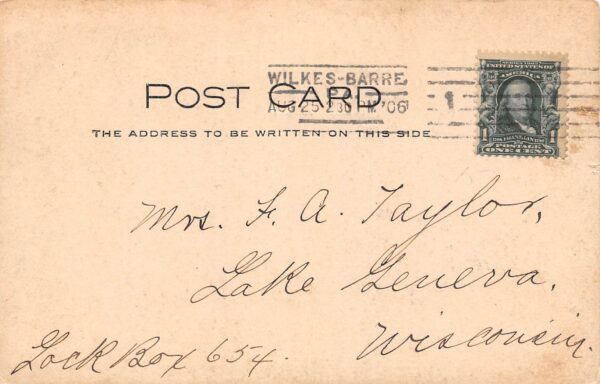 WILKES-BARRE
POST CARD
AUG 25 2 30 M '06
1
THE ADDRESS TO BE WRITTEN ON THIS SIDE
SERIES 1902
UNITED STATES OF
AMERICA
1
FRANKLIN
POSTAGE
ONE CENT
Mrs. F. A. Taylor,
Lake Geneva,
Wisconsin.
Lock Box 654.